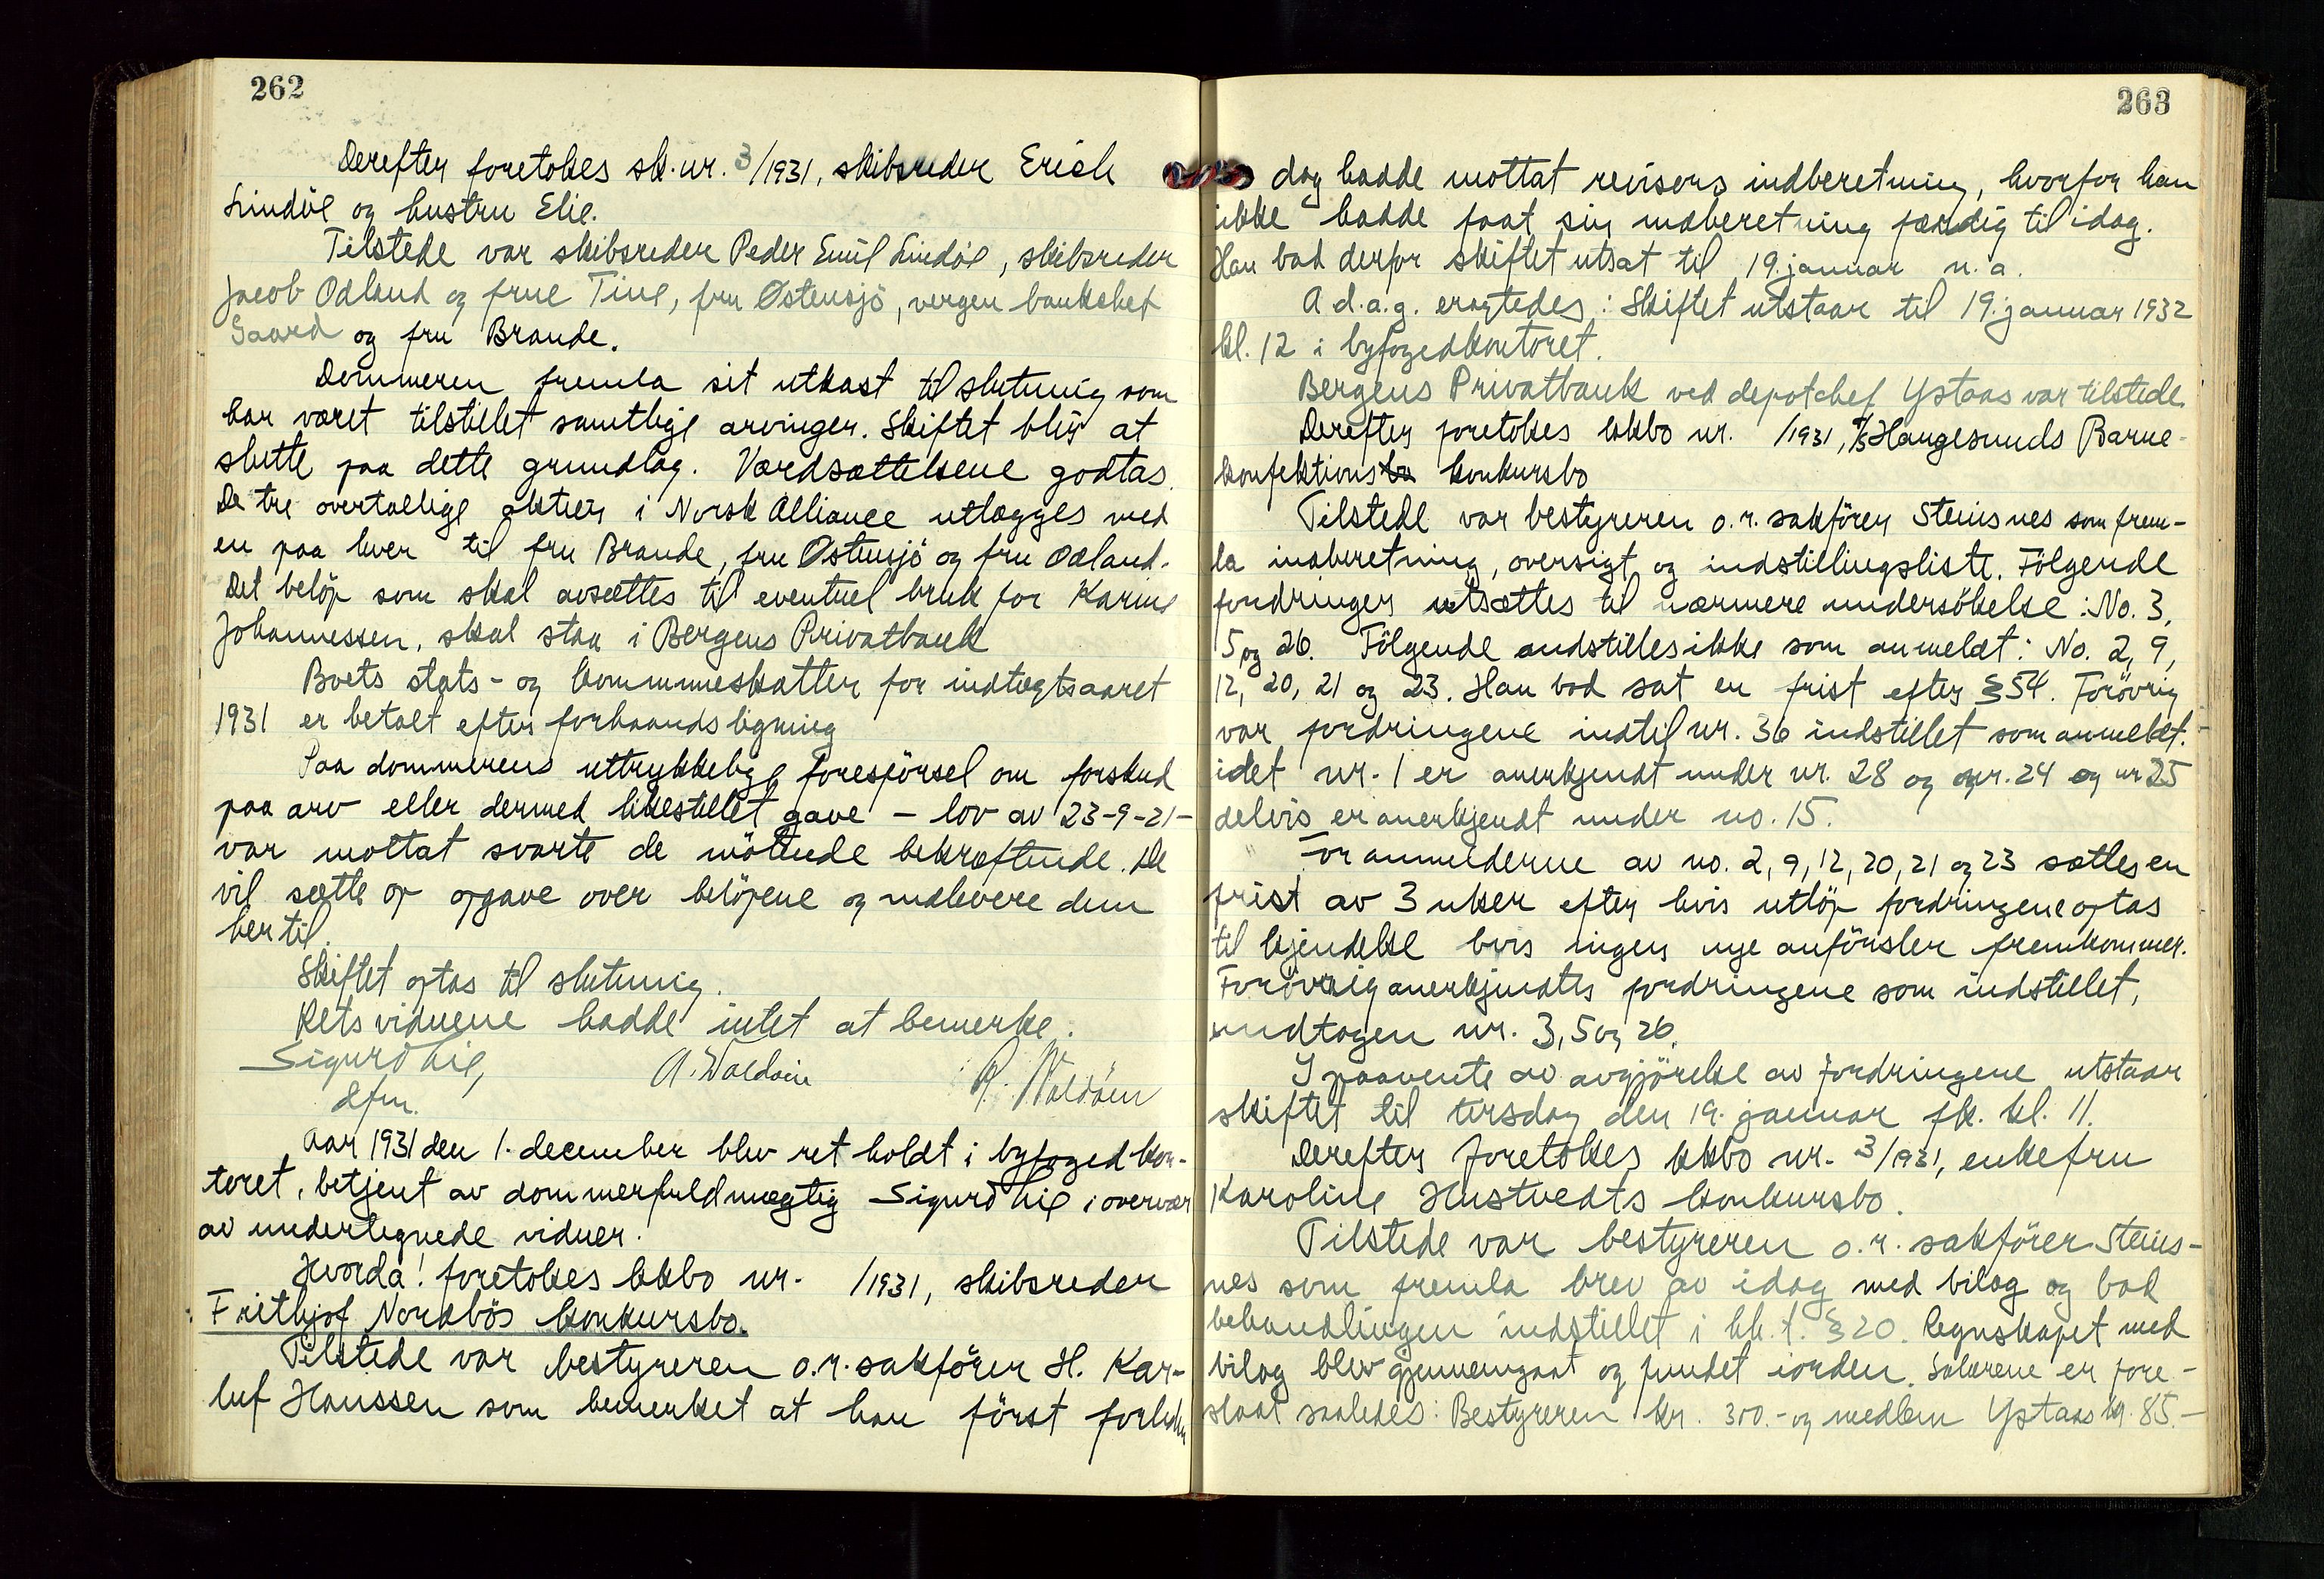 262
Derefter foretokes sk. nr. 3/1931, skibsreder Erich
Lindöe og hustru Elie.
Tilstede var skibsreder Peder Emil Lindöe, skibsreder
Jacob Odland og frue Tine, fru Østensjö, vergen bankchef
Gaard og fru Brande.
Dommeren fremla sit utkast til slutning som
har været tilstillet samtlige arvinger. Skiftet blir at
slutte paa dette grundlag. Værdsættelsene godtas.
De tre overtallige aktier i Norsk Alliance utlægges med
en paa hver til fru Brande, fru Østensjö og fru Odland.
Det belöp som skal avsættes til eventuel bruk for Karine
Johannessen, skal staa i Bergens Privatbank
Boets stats- og kommuneskatter for indtægtsaaret
1931 er betalt efter forhaandsligning
Paa dommerens uttrykkelige forespörsel om forskud
paa arv eller dermed likestillet gave - lov av 23-9-21-
var mottat svarte de mötende bekræftende. De
vil sætte op opgave over belöpene og indlevere dem
hertil.
Skiftet optas til slutning.
Retsvidnene hadde intet at bemerke.
Sigurd Lie, A. Waldöin R. Waldöin
dfm.
Aar 1931 den 1. december blev ret holdt i byfogedkon-
toret, betjent av dommerfuldmægtig Sigurd Lie i overvær
av undertegnede vidner.
Hvorda! foretokes kkbo nr. /1931, skibsreder
Frithjof Nordbös konkursbo.
Tilstede var bestyreren o.r. sakförer H. Kar-
luf Hanssen som bemerket at han först forleden
263
dag hadde mottat revisors indberetning, hvorfor han
ikke hadde faat sin indberetning færdig til idag.
Han bad derfor skiftet utsat til 19. januar n. a.
A d.a.g. eragtedes: Skiftet utstaar til 19. januar 1932
kl. 12 i byfogedkontoret.
Bergens Privatbank ved depotchef Ystaas var tilstede.
Derefter foretokes kkbo nr. /1931, A/S Haugesunds Barne-
konfektions konkursbo
Tilstede var bestyreren o.r. sakförer Steinsnes som frem-
la indberetning, oversigt og indstillingsliste. Fölgende
fordringer utsættes til nærmere undersökelse: No. 3,
5 og 26. Fölgende indstilles ikke som anmeldt: No. 2, 9,
12, 20, 21 og 23. Han bad sat en frist efter § 54. Forövrig
var fordringene indtil nr. 36 indstillet som anmeldt.
idet nr. 1 er anerkjendt under nr. 28 og nr. 24 og nr 25
delvis er anerkjendt under no. 15.
For anmelderne av no. 2, 9, 12, 20, 21 og 23 sættes en
frist av 3 uker efter hvis utlöp fordringene optas
til kjendelse hvis ingen nye anförsler fremkommer.
Forövrig anerkjendtes fordringene som indstillet,
undtagen nr. 3, 5 og 26.
I paavente av avgjörelse av fordringene utstaar
skiftet til tirsdag den 19. januar fk. kl. 11.
Derefter foretokes kkbo nr. 3/1931, enkefru
Karoline Hustvedts konkursbo.
Tilstede var bestyreren o.r. sakförer Steins-
nes som fremla brev av idag med bilag og bad
behandlingen indstillet i hh. t. § 20. Regnskapet med
bilag blev gjennemgaat og fundet iorden. Salærene er fore-
slaat saaledes: Bestyreren kr. 300.- og medlem Ystaas kr. 85.-